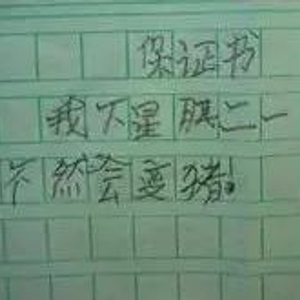 保证书
我下星期二一
不然会变猪。